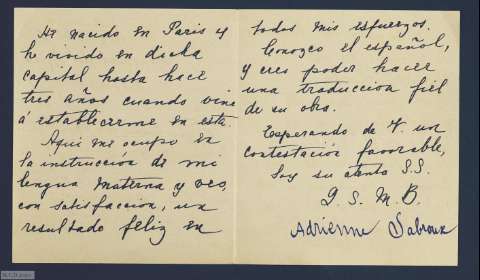 He nacido en Paris y
he vivido en dicha
capital hasta hace
tres años cuando vine
á establecerme en esta.
Aqui me ocupo en
la instruccion de mi
lengua materna y veo,
con satisfacción, un
resultado feliz en
todos mis esfuerzos.
Conozco el español,
y creo poder hacer
una traduccion fiel
de su obra.
Esperando de V. un
contestación favorable,
soy su atenta S.S.
Q. S. M. B.
Adrienne